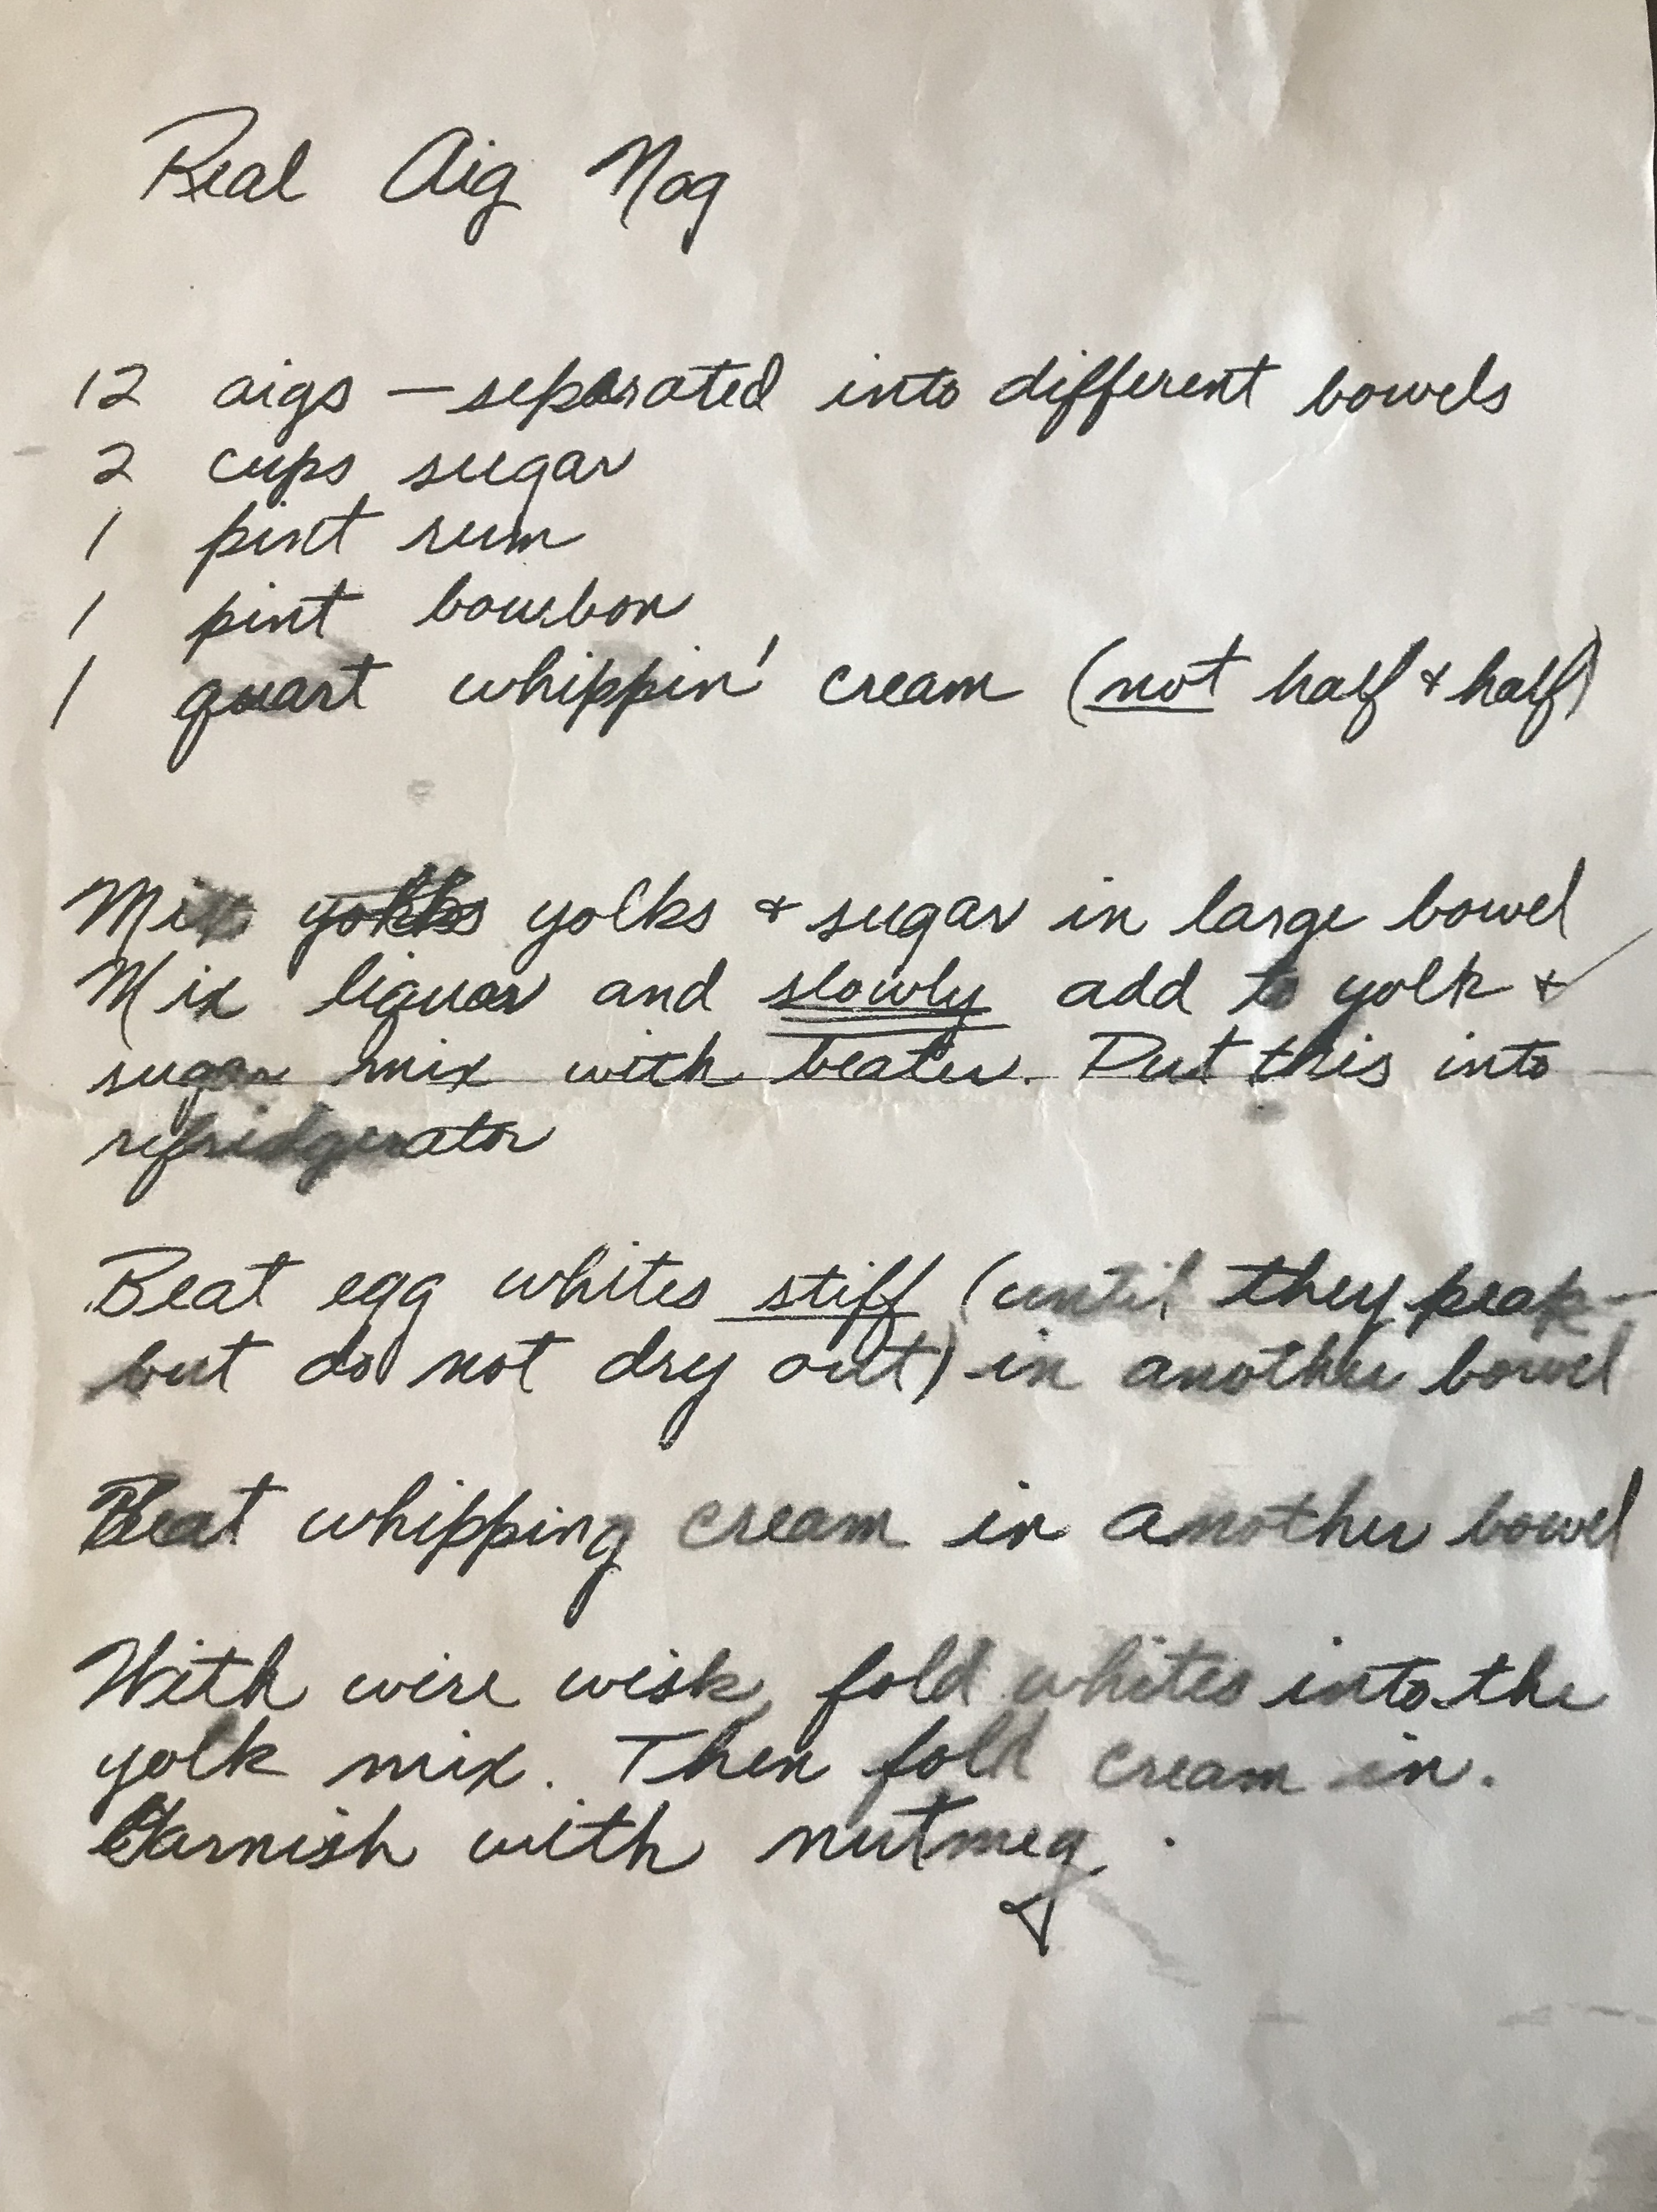 Real Aig Nog
12 aigs — separated into different bowels
2 cups sugar
1 pint rum
1 pint bourbon
1 quart whippin' cream (not half & half)
Mix yolks yolks & sugar in large bowel
Mix liquor and slowly add to yolk &
sugar mix with beater. Put this into
refridgerator
Beat egg whites stiff (until they peak -
but do not dry out) in another bowel
Beat whipping cream in another bowel
With wire wisk, fold whites into the
yolk mix. Then fold cream in.
Garnish with nutmeg.